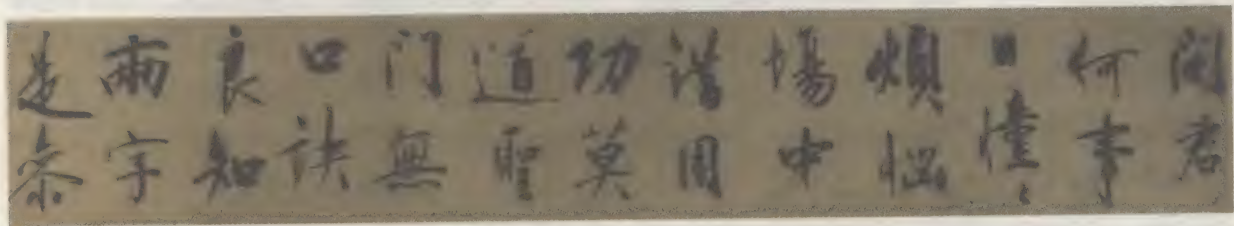 問君
何事
日憧〻
煩惱
場中
錯用
功莫
道聖
門無
口訣
良知
兩字
是參